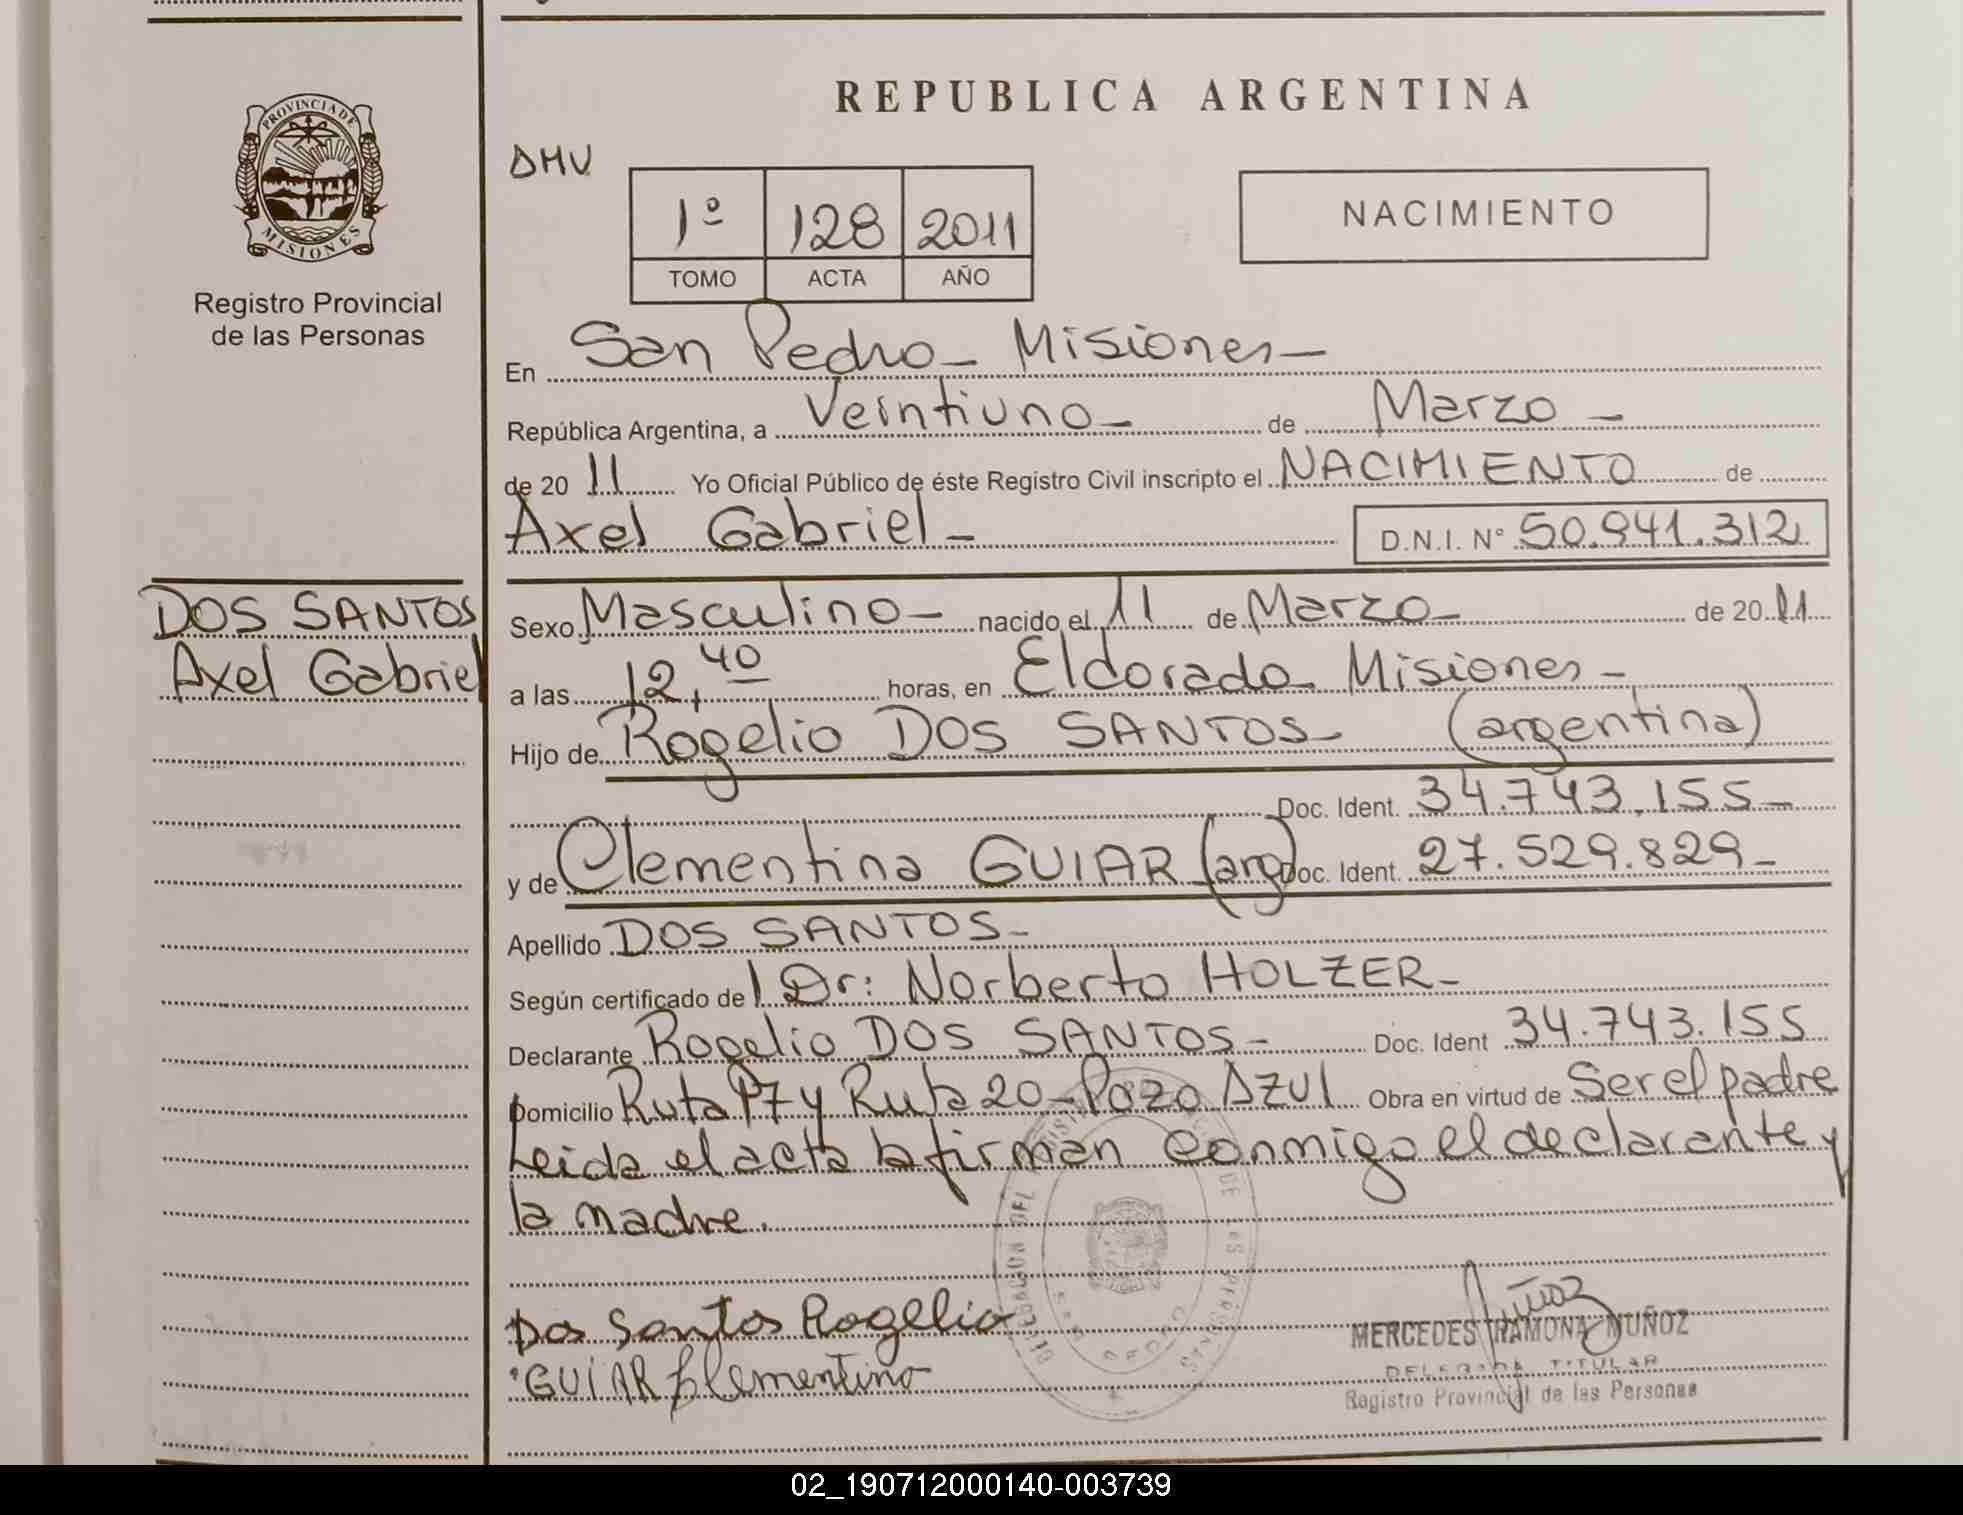 REPUBLICA ARGENTINA
PROVINCIA DE
MISIONES
Registro Provincial
de las Personas
DMV
1º 128 2011
TOMO ACTA AÑO
NACIMIENTO
En San Pedro - Misiones -
República Argentina, a Veintiuno - de Marzo -
de 20 11 Yo Oficial Público de éste Registro Civil inscripto el NACIMIENTO de
Axel Gabriel - D.N.I. N° 50.941.312
DOS SANTOS
Axel Gabriel
Sexo Masculino - nacido el 11 de Marzo - de 20 11
a las 12,40 horas, en Eldorado - Misiones -
Hijo de Rogelio DOS SANTOS - (argentina)
Doc. Ident. 34.743.155 -
y de Clementina GUIAR (arg) Doc. Ident. 27.529.829 -
Apellido DOS SANTOS -
Según certificado de Dr: Norberto HOLZER -
Declarante Rogelio DOS SANTOS - Doc. Ident 34.743.155
Domicilio Ruta P7 y Ruta 20 - Pozo Azul Obra en virtud de Ser el padre
Leida el acta la firman conmigo el declarante y
la madre.
Dos Santos Rogelio
GUIAR Clementina
Muñoz
MERCEDES RAMONA MUÑOZ
DELEGADA TITULAR
Registro Provincial de las Personas
02_190712000140-003739